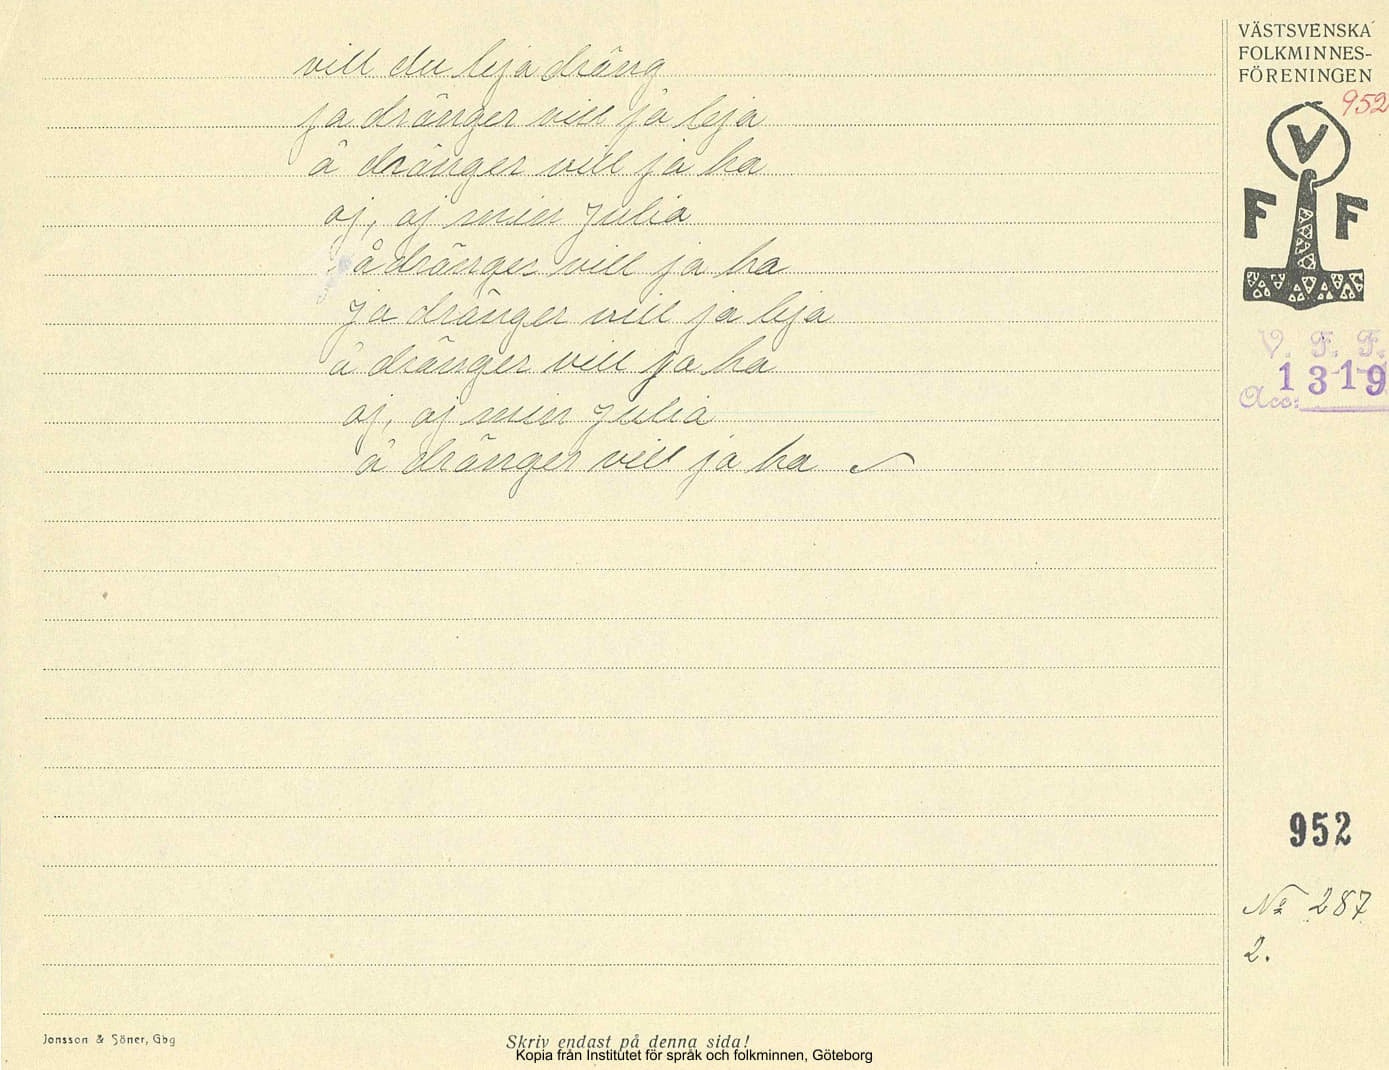 vill du leja dräng
ja dränger vill ja leja
å dränger vill ja ha
oj, oj min Julia
å dränger vill ja ha
ja dränger vill ja leja
å dränger vill ja ha
oj, oj min Julia
å dränger vill ja ha
VÄSTSVENSKA
FOLKMINNES-
FÖRENINGEN
952
V
F F
V. F. F.
1319
Acc:
952
No 287
2.
Jonsson & Söner, Gbg
Skriv endast på denna sida!
Kopia från Institutet för språk och folkminnen, Göteborg